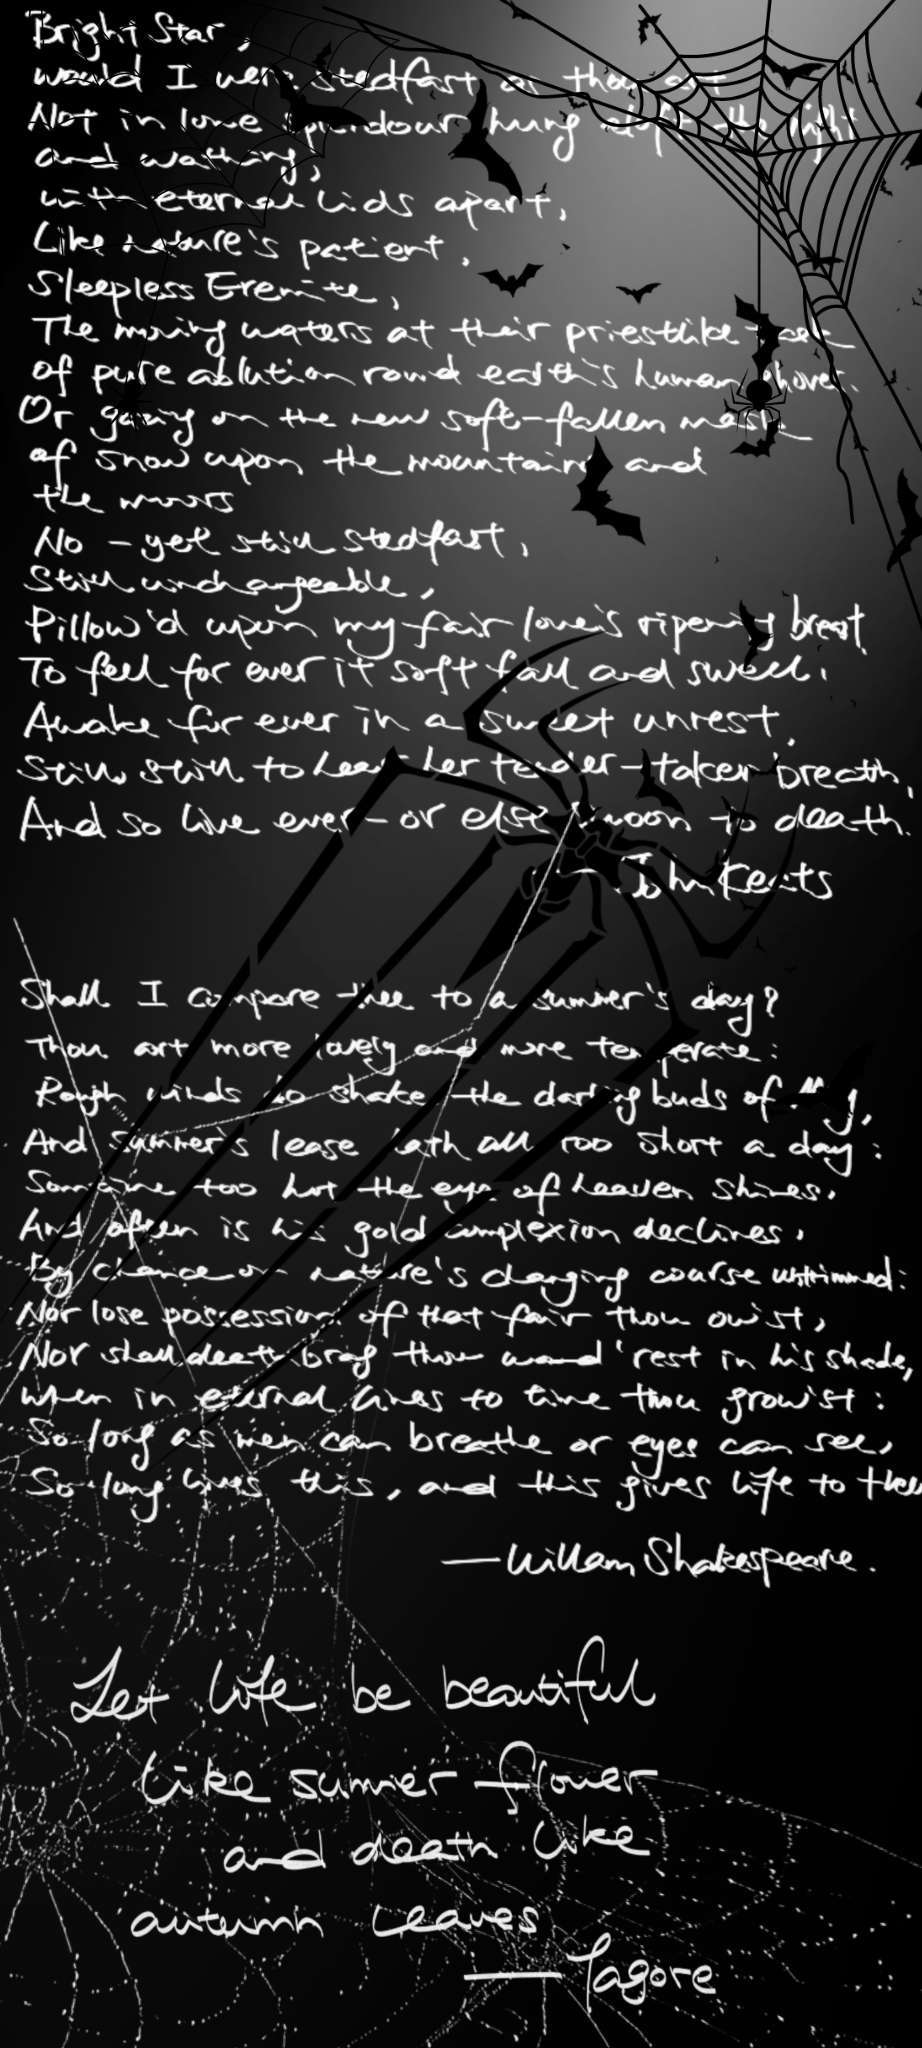 Bright Star,
would I were stedfast as thou art
Not in lone splendour hung aloft the night
and watching,
with eternal lids apart,
Like nature's patient,
Sleepless Eremite,
The moving waters at their priestlike task
of pure ablution round earth's human shores.
Or gazing on the new soft-fallen mask
of snow upon the mountains and
the moors
No - yet still stedfast,
Still unchangeable,
Pillow'd upon my fair love's ripening breast
To feel for ever it soft fall and swell.
Awake for ever in a sweet unrest,
Still, still to hear her tender-taken breath,
And so live ever - or else swoon to death.
— John Keats
Shall I compare thee to a summer's day?
Thou art more lovely and more temperate:
Rough winds do shake the darling buds of May,
And summer's lease hath all too short a day:
Sometime too hot the eye of heaven shines.
And often is his gold complexion declines,
By chance or nature's changing course untrimmed:
Nor lose possession of that fair thou ow'st,
Nor shall death brag thou wand'rest in his shade,
When in eternal lines to time thou grow'st:
So long as men can breathe or eyes can see,
So long lives this, and this gives life to thee
— William Shakespeare.
Let life be beautiful
like summer flower
and death like
autumn leaves
— Tagore